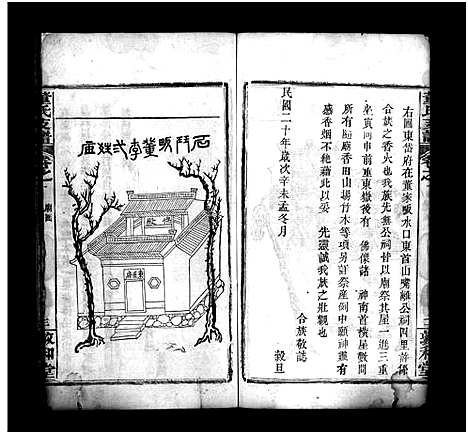 右圖東嶽府在董家畈水口東首山嘴離公祠四里許係
合族之香火也我族先無公祠昔以廟祭其屋一進三重
坐寅向申前重東嶽後有佛像諸神南首橫屋數間
所有廟廟香田山場竹木等項另討祭產倒中願神靈有
感香烟不熄籍此以妥先靈誠我族之壯觀也
民國二十年歲次辛未孟冬月
合族敬誌
穀旦
石門畈董李弍姓庙
東嶽府
董氏支譜
三敦和堂